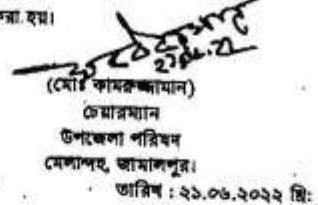 করা হয়।
(মোঃ কামরুজ্জামান)
চেয়ারম্যান
উপজেলা পরিষদ
মেলান্দহ, জামালপুর।
তারিখ : ২১.০৬.২০২২ খ্রি: